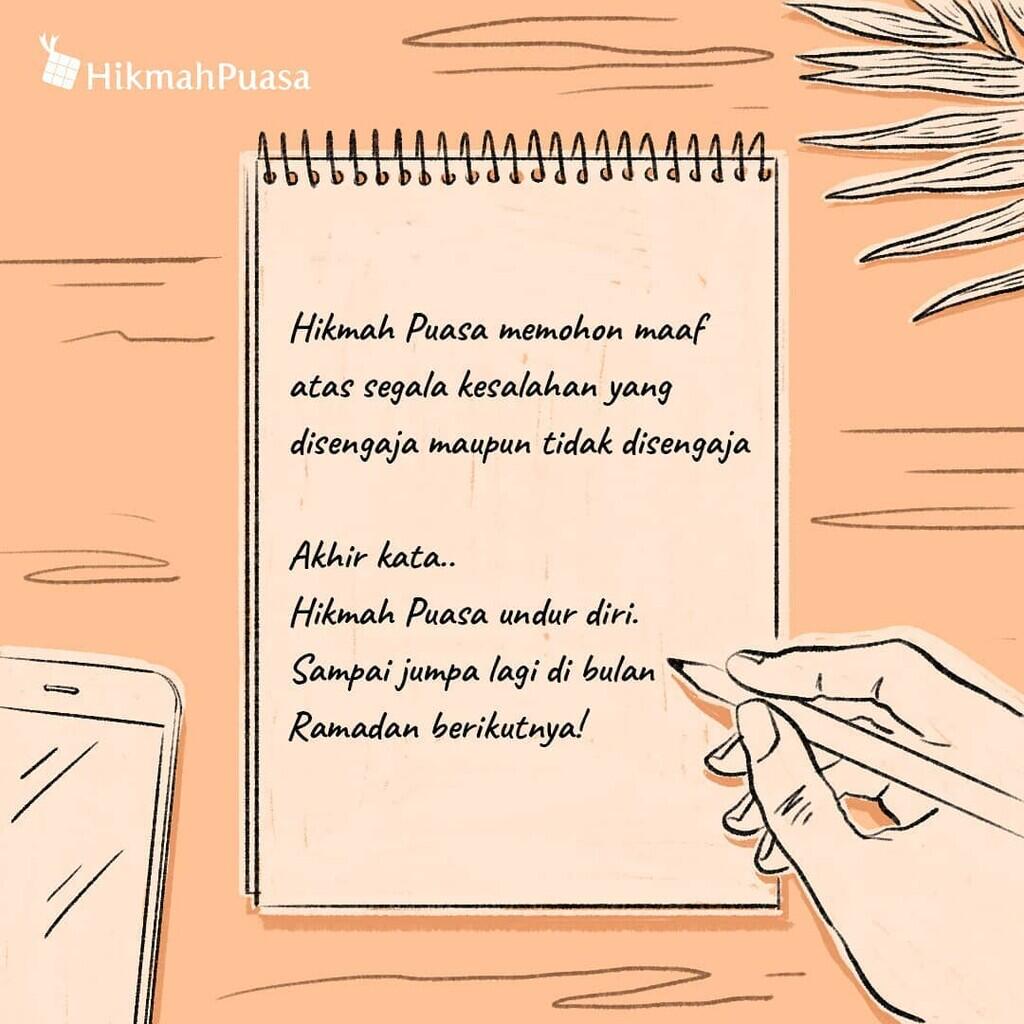 HikmahPuasa
Hikmah Puasa memohon maaf
atas segala kesalahan yang
disengaja maupun tidak disengaja
Akhir kata..
Hikmah Puasa undur diri.
Sampai jumpa lagi di bulan
Ramadan berikutnya!